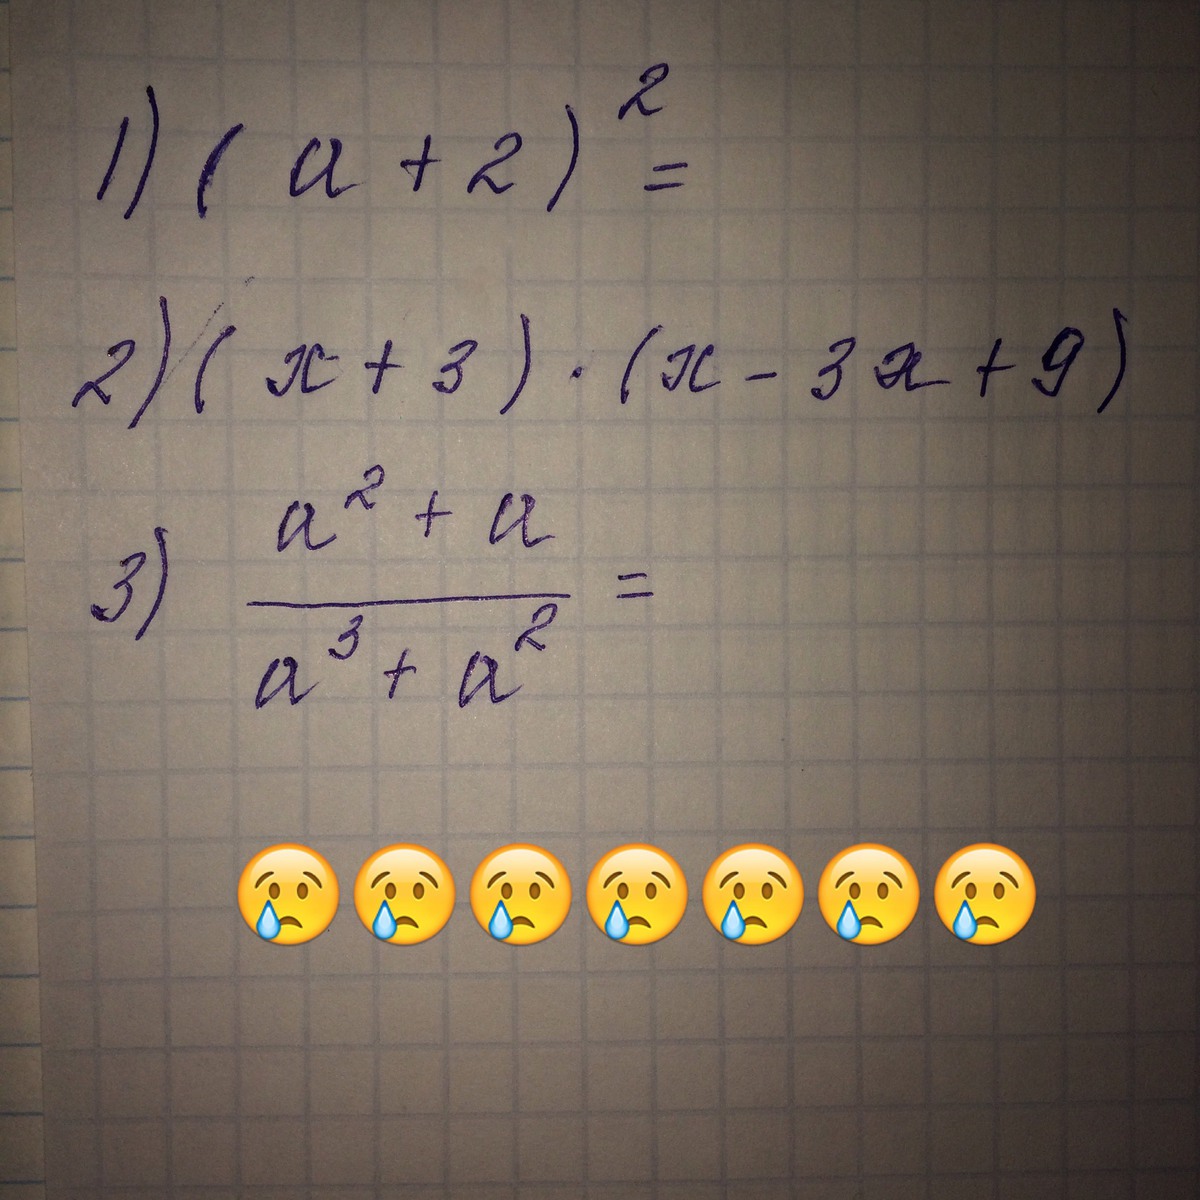 1) (a + 2)² =
2) (x + 3) · (x - 3x + 9)
3) a² + a
a³ + a² =